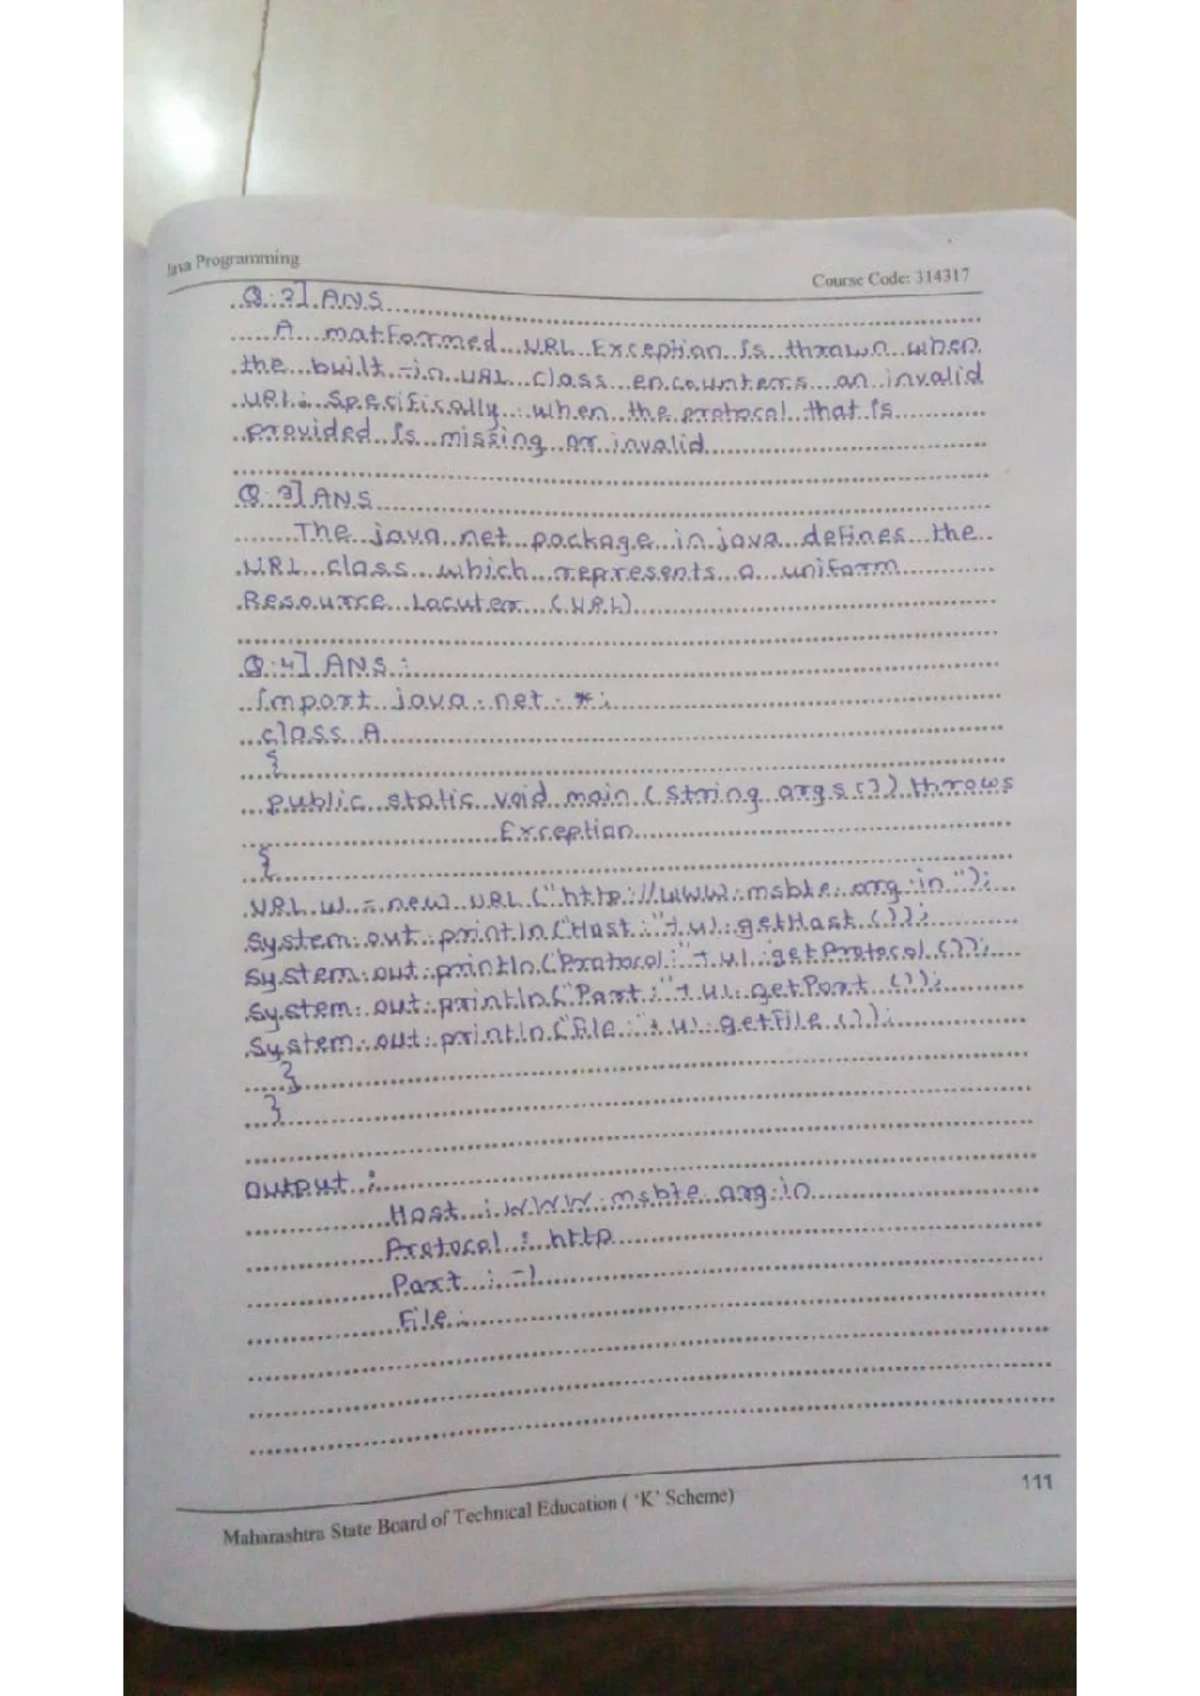 Java Programming
Course Code: 314317
Q.2] ANS
A matformed URL Exception is thrown when
the built-in URL class encounters an invalid
URL; Specifically when the protocol that is
provided is missing or invalid
Q.3] ANS
The java.net package in java defines the
URL class which represents a uniform
Resource Lacuter (URL)
Q.4] ANS :
import java.net.*;
class A
{
public static void main (String args []) throws
Exception
{
URL ul = new URL ("http://www.msbte.org.in");
System.out.println("Host:"+ul.getHost());
System.out.println("Protocol:"+ul.getProtocol());
System.out.println("Port:"+ul.getPort());
System.out.println("File:"+ul.getFile());
}
}
Output :
Host : WWW.msbte.org.in
Protocol : http
Port : -1
File :
Maharashtra State Board of Technical Education ( 'K' Scheme)
111